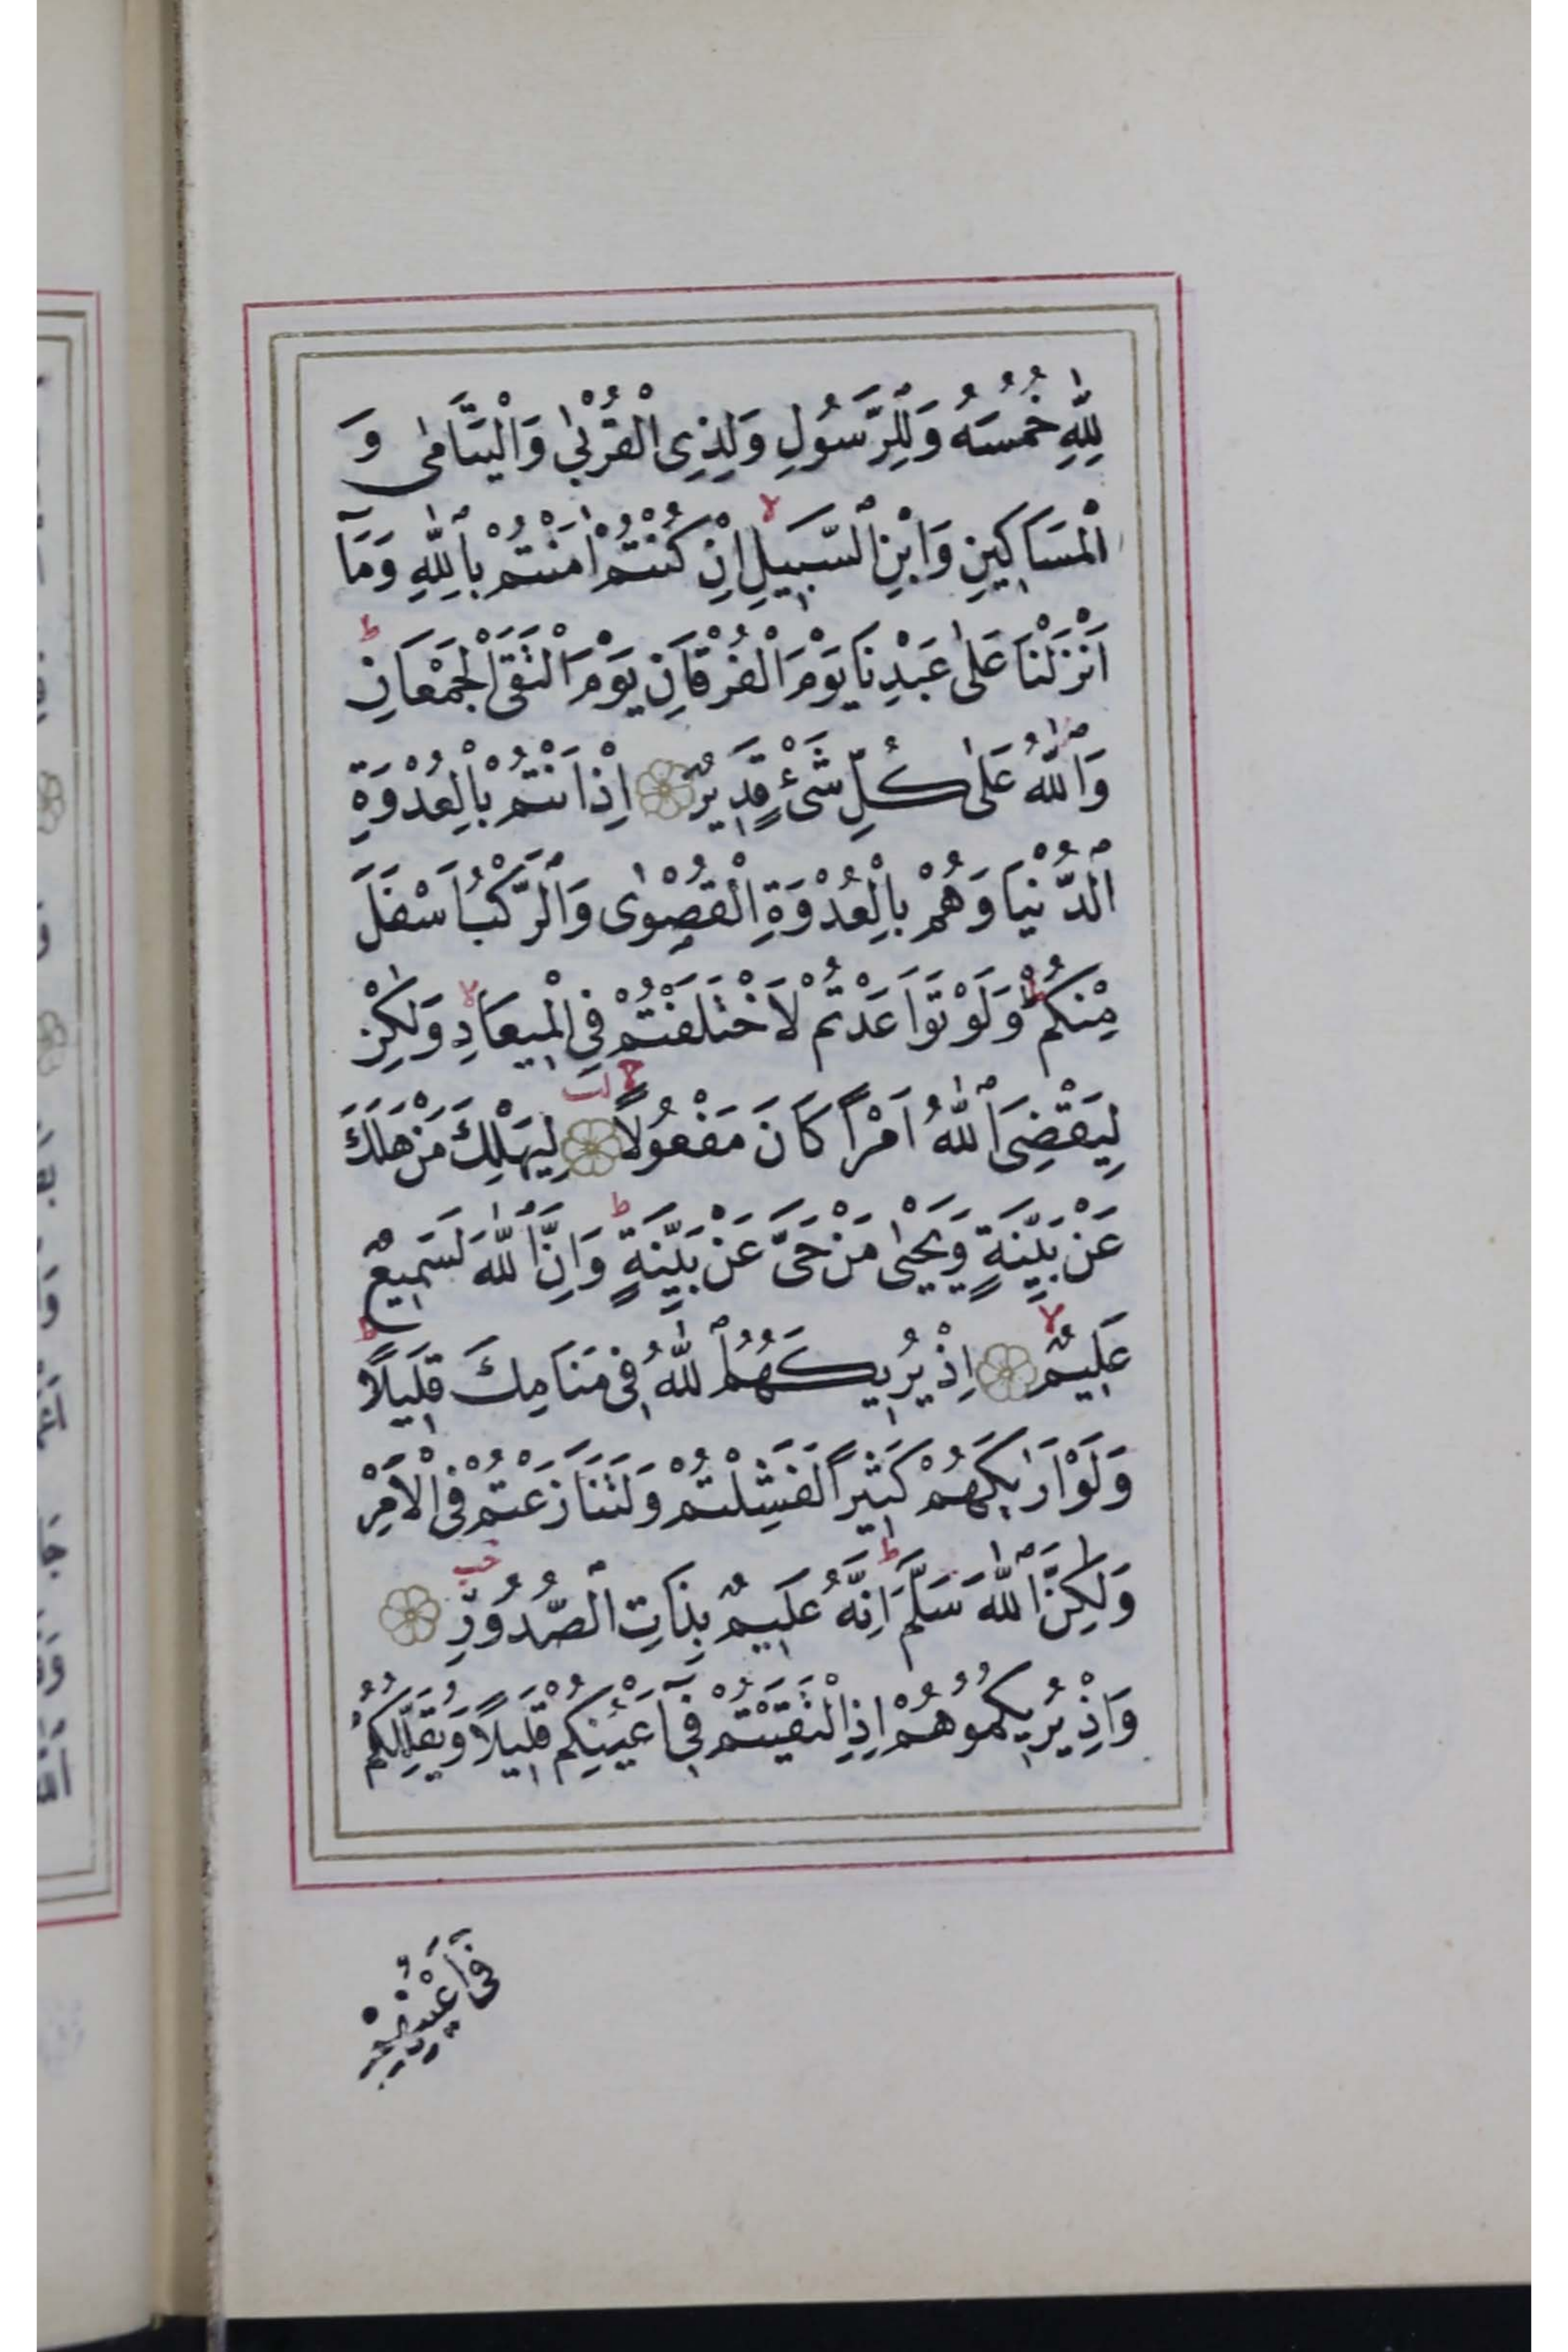 لِلّٰهِ خُمُسَهُ وَلِلرَّسُولِ وَلِذِى الْقُرْبٰى وَالْيَتَامٰى وَ
الْمَسَاكِينِ وَابْنِ السَّبِيلِ ۙ اِنْ كُنْتُمْ اٰمَنْتُمْ بِاللّٰهِ وَمَآ
اَنْزَلْنَا عَلٰى عَبْدِنَا يَوْمَ الْفُرْقَانِ يَوْمَ الْتَقَى الْجَمْعَانِ ط
وَاللّٰهُ عَلٰى كُلِّ شَىْءٍ قَدِيرٌ ۝ اِذْ اَنْتُمْ بِالْعُدْوَةِ
الدُّنْيَا وَهُمْ بِالْعُدْوَةِ الْقُصْوٰى وَالرَّكْبُ اَسْفَلَ
مِنْكُمْ ط وَلَوْ تَوَاعَدْتُمْ لَاخْتَلَفْتُمْ فِى الْمِيعَادِ ۙ وَلٰكِنْ
لِيَقْضِىَ اللّٰهُ اَمْرًا كَانَ مَفْعُولًا ۝ لِيَهْلِكَ مَنْ هَلَكَ
عَنْ بَيِّنَةٍ وَيَحْيٰى مَنْ حَىَّ عَنْ بَيِّنَةٍ ط وَاِنَّ اللّٰهَ لَسَمِيعٌ
عَلِيمٌ ۙ ۝ اِذْ يُرِيكَهُمُ اللّٰهُ فِى مَنَامِكَ قَلِيلًا ط
وَلَوْ اَرٰيكَهُمْ كَثِيرًا لَفَشِلْتُمْ وَلَتَنَازَعْتُمْ فِى الْاَمْرِ
وَلٰكِنَّ اللّٰهَ سَلَّمَ ط اِنَّهُ عَلِيمٌ بِذَاتِ الصُّدُورِ ۝
وَاِذْ يُرِيكُمُوهُمْ اِذِ الْتَقَيْتُمْ فِىٓ اَعْيُنِكُمْ قَلِيلًا وَيُقَلِّلُكُمْ
فِىٓ اَعْيُنِهِمْ